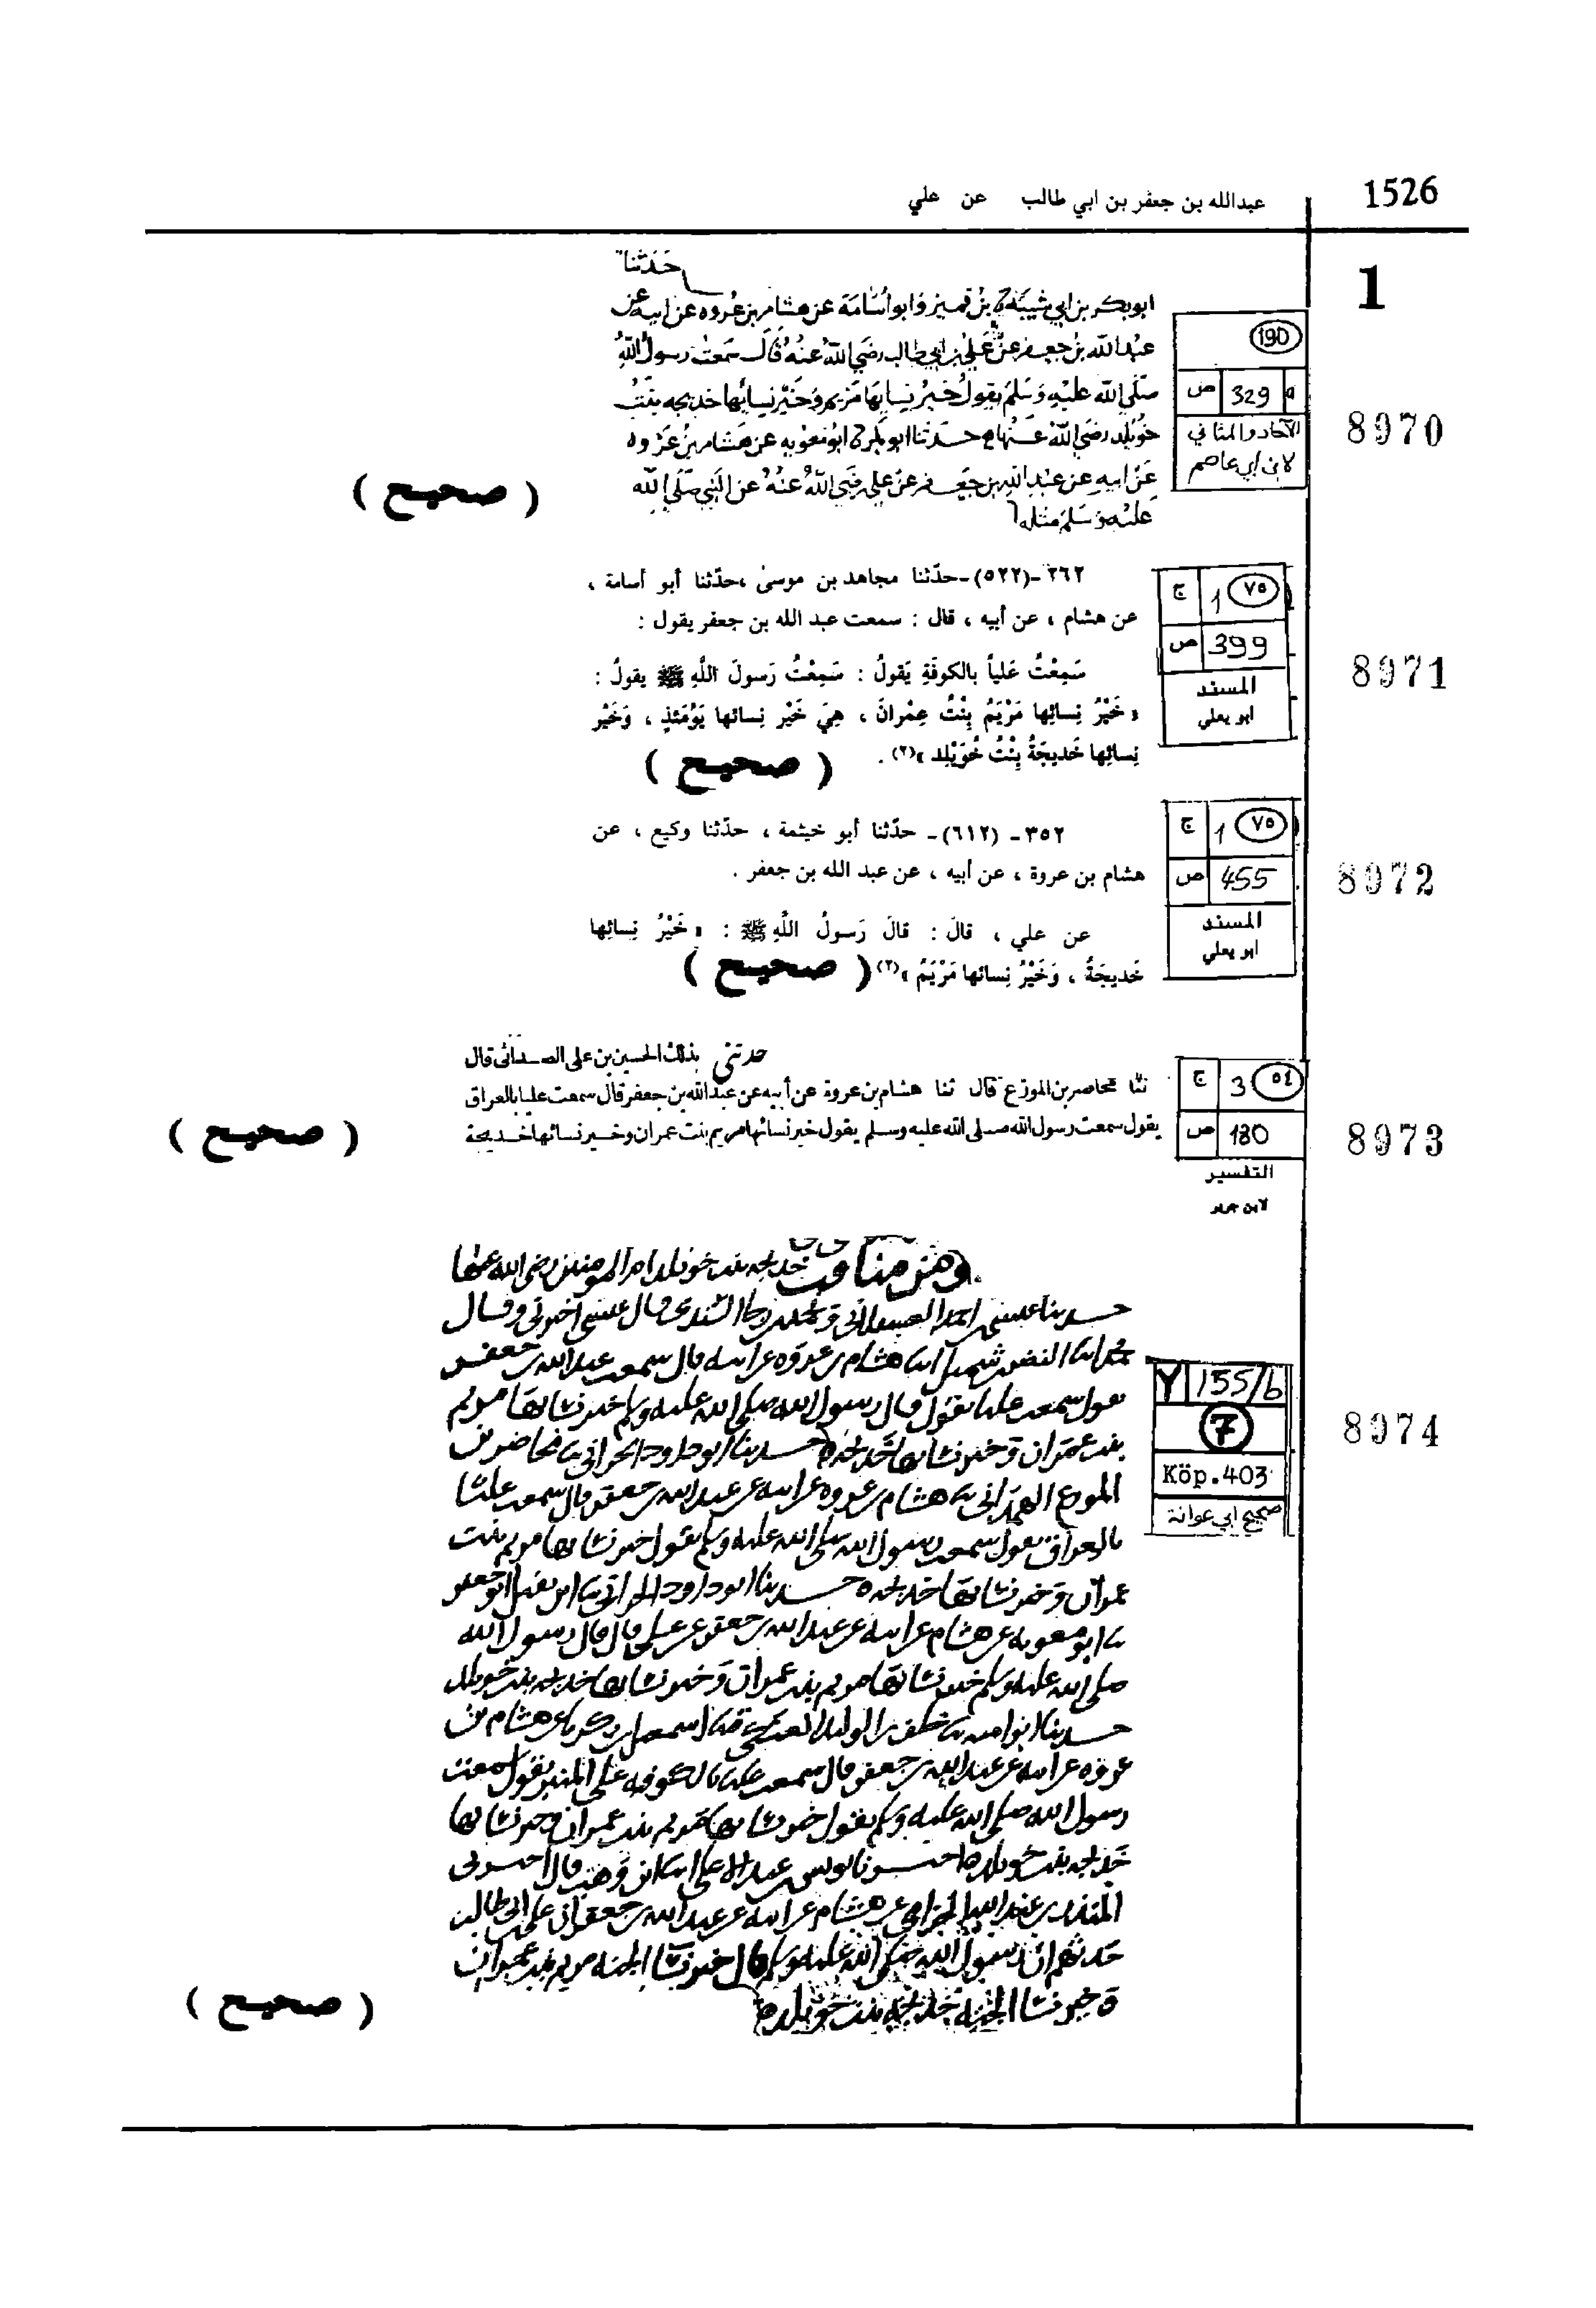 1526
عبدالله بن جعفر بن ابي طالب عن علي
1
حَدَثنا
ابوبكر بن ابي شيبة بن نمير وابو أسامة عن هشام بن عروه عن ابيه عن
عبد الله بن جعفر عن علي بن ابي طالب رضي الله عنه قال سمعت رسول الله
صلى الله عليه وسلم يقول خير نسايها مريم وخير نسائها خديجه بنت
خويلد رضي الله عنها حدثنا ابو بكر ابو معويه عن هشام بن عروه
عن ابيه عن عبد الله بن جعفر عن علي رضي الله عنه عن النبي صلى الله
عليه وسلم مثله
( صحيح )
190
329 ص
الآحاد والمثاني
لابن ابي عاصم
8970
٢٦٢ -(٥٢٢)- حدّثنا مجاهد بن موسىٰ ، حدّثنا أبو أسامة ،
عن هشام ، عن أبيه ، قال : سمعت عبد الله بن جعفر يقول :
سَمِعْتُ عَلياً بالكوفَةِ يَقولُ : سَمِعْتُ رَسولَ اللَّهِ ﷺ يقولُ :
« خَيْرُ نِسائِها مَرْيَمُ بِنْتُ عِمْرانَ ، هِيَ خَيْر نِسائها يَوْمَئذٍ ، وَخَيْر
نِسائِها خَديجَةُ بِنْتُ خُوَيْلِد »(٢) .
( صحيح )
٧٥ 1 ج
399 ص
المسند
ابو يعلي
8971
٣٥٢- (٦١٢)- حدّثنا أبو خيثمة ، حدّثنا وكيع ، عن
هشام بن عروة ، عن أبيه ، عن عبد الله بن جعفر .
عن علي ، قالَ : قالَ رَسولُ اللَّهِ ﷺ : « خَيْرُ نِسائِها
خَديجَةُ ، وَخَيْرُ نِسائها مَرْيَمُ »(٢) ( صحيح )
٧٥ 1 ج
455 ص
المسند
ابو يعلي
8972
حدثني بذلك الحسين بن على الصدائى قال
ثنا محاضر بن المورّع قال ثنا هشام بن عروة عن أبيه عن عبدالله بن جعفر قال سمعت عليا بالعراق
يقول سمعت رسول الله صلى الله عليه وسلم يقول خير نسائها مريم بنت عمران وخير نسائها خديجة
( صحيح )
٥٤ 3 ج
180 ص
التفسير
لابن جرير
8973
ومن مناقب خديجه بنت خويلد ام المومنين رضى الله عنها
حدثنا عيسى بن احمد العسقلاني قال عيسى اخبرنى وقال
النضر بن شميل هشام بن عروه عن ابيه قال سمعت عبدالله بن جعفر
يقول سمعت عليا يقول قال رسول الله صلى الله عليه وسلم خير نسايها مريم
بنت عمران وخير نسايها خديجه حدثنا ابو داود الحراني محاضر بن
المورع الهمداني هشام بن عروه عن ابيه عن عبدالله بن جعفر قال سمعت عليا
بالعراق يقول سمعت رسول الله صلى الله عليه وسلم يقول خير نسايها مريم بنت
عمران وخير نسايها خديجه حدثنا ابو داود الحراني ابن نفيل ابو جعفر
ابو معويه عن هشام عن ابيه عن عبدالله بن جعفر عن علي قال قال رسول الله
صلى الله عليه وسلم خير نسايها مريم بنت عمران وخير نسايها خديجه بنت خويلد
حدثنا ابو اميه خلف بن الوليد اسمعيل بن زكريا عن هشام بن
عروه عن ابيه عن عبدالله بن جعفر قال سمعت عليا بالكوفه على المنبر يقول سمعت
رسول الله صلى الله عليه وسلم يقول خير نسايها مريم بنت عمران وخير نسايها
خديجه بنت خويلد حدثنا يونس بن عبد الاعلى ابن وهب قال اخبرني
المنذر بن عبدالله الحزامي عن هشام عن ابيه عن عبدالله بن جعفر ان علي بن ابي طالب
حدثهم ان رسول الله صلى الله عليه وسلم قال خير نسا الجنه مريم بنت عمران
وخير نسا الجنه خديجه بنت خويلد
( صحيح )
Y 155/b
7
Köp.403
صحيح ابي عوانة
8974